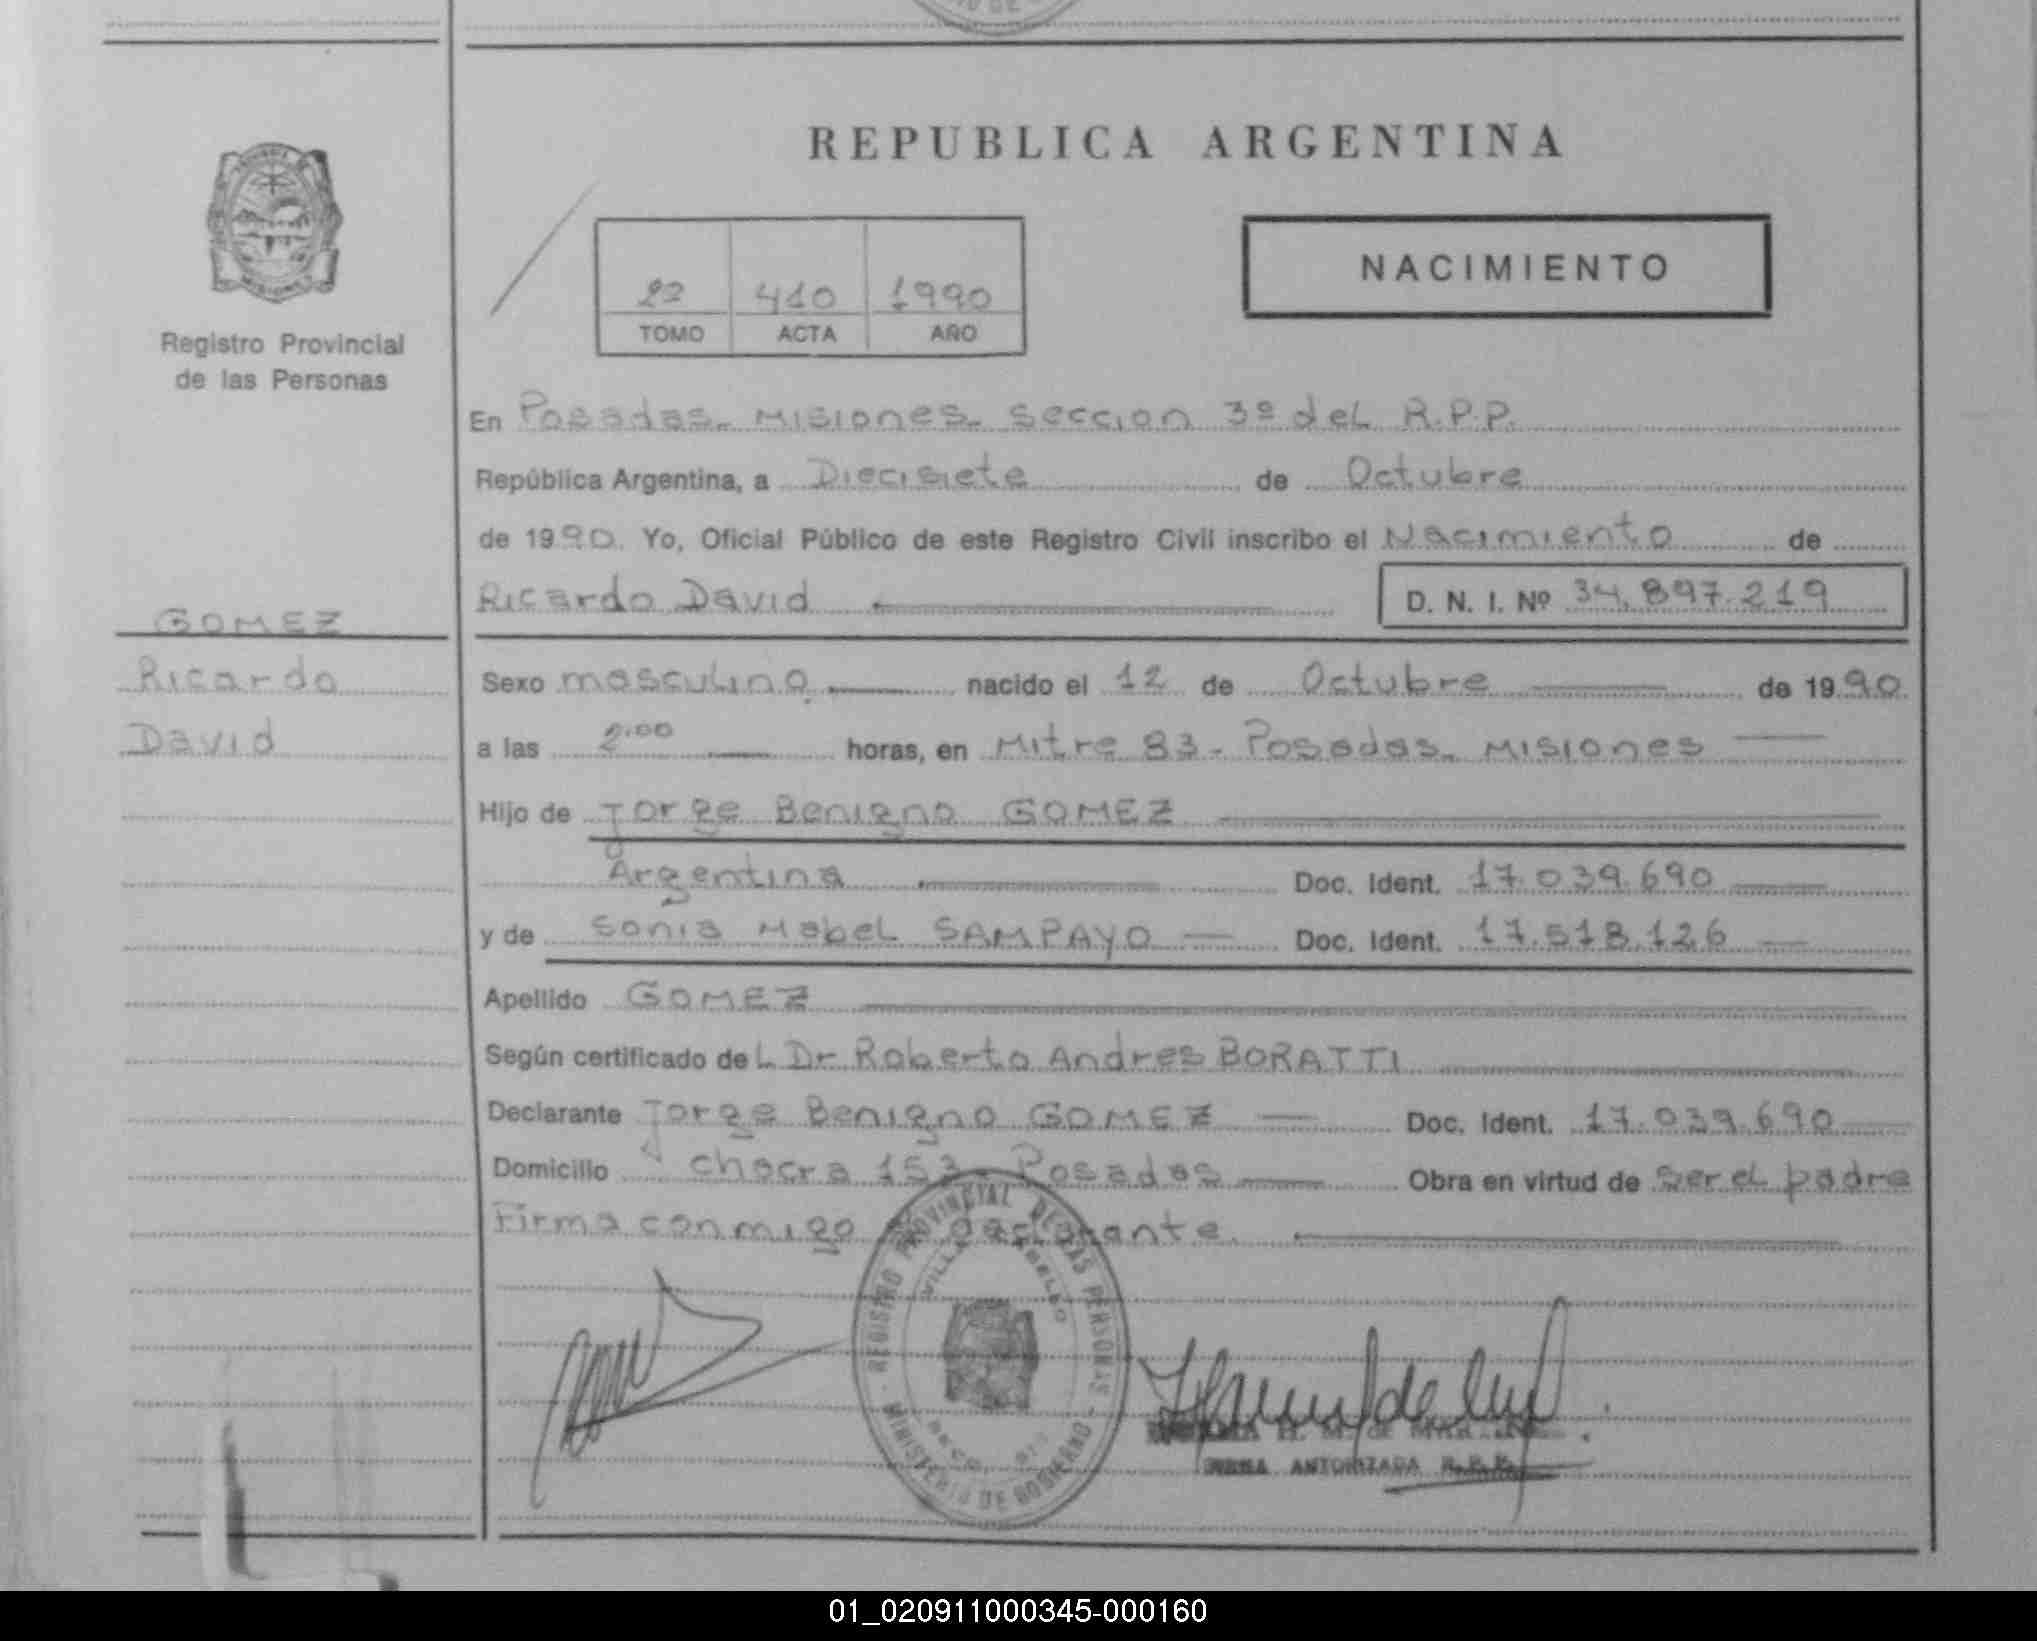 REPUBLICA ARGENTINA
22 410 1990
TOMO ACTA AÑO
NACIMIENTO
Registro Provincial
de las Personas
En Posadas. Misiones. Seccion 3º del R.P.P.
República Argentina, a Diecisiete de Octubre
de 1990. Yo, Oficial Público de este Registro Civil inscribo el Nacimiento de
Ricardo David D. N. I. Nº 34.897.219
GOMEZ
Ricardo
David
Sexo masculino nacido el 12 de Octubre de 1990
a las 2.00 horas, en Mitre 83. Posadas. Misiones
Hijo de Jorge Benigno GOMEZ
Argentina Doc. Ident. 17.039.690
y de Sonia Mabel SAMPAYO Doc. Ident. 17.518.126
Apellido GOMEZ
Según certificado del Dr Roberto Andres BORATTI
Declarante Jorge Benigno GOMEZ Doc. Ident. 17.039.690
Domicilio chacra 153. Posadas Obra en virtud de ser el padre
Firma conmigo el declarante
REGISTRO PROVINCIAL DE LAS PERSONAS
MINISTERIO DE GOBIERNO
VILLA CABELLO
FIRMA AUTORIZADA R.P.P.
01_020911000345-000160